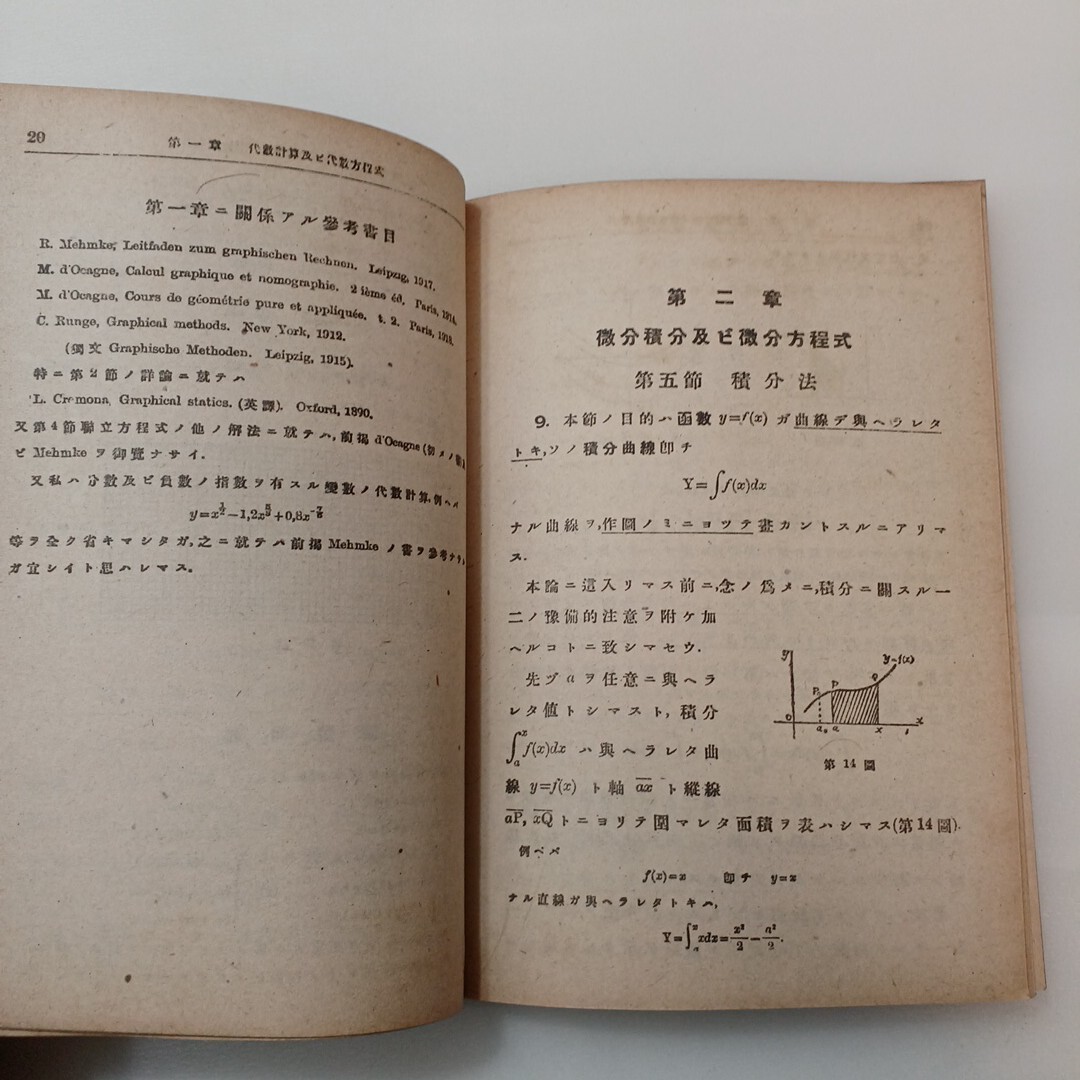 20
第一章 代數計算及ビ代數方程式
第一章ニ關係アル參考書目
R. Mehmke, Leitfaden zum graphischen Rechnen. Leipzig, 1917.
M. d'Ocagne, Calcul graphique et nomographie. 2 ième éd. Paris, 1914.
M. d'Ocagne, Cours de géométrie pure et appliquée. t. 2. Paris, 1918.
C. Runge, Graphical methods. New York, 1912.
(獨文 Graphische Methoden. Leipzig, 1915).
特ニ第2節ノ詳論ニ就テハ
L. Cremona, Graphical statics. (英譯). Oxford, 1890.
又第4節聯立方程式ノ他ノ解法ニ就テハ,前揭 d'Ocagne (初メノ
ビ Mehmke ヲ御覽ナサイ.
又私ハ分數及ビ負數ノ指數ヲ有スル變數ノ代數計算,例ヘバ
y=x^{1/2}−1,2x^{5/3}+0,8x^{−7/6}
等ヲ全ク省キマシタガ,之ニ就テハ前揭 Mehmke ノ書ヲ參考ナサ
ガ宜シイト思ハレマス.
第二章
微分積分及ビ微分方程式
第五節 積分法
9. 本節ノ目的ハ函數 y=f(x) ガ曲線デ與ヘラレタ
トキ,ソノ積分曲線卽チ
Y=∫f(x)dx
ナル曲線ヲ,作圖ノミニヨツテ畫カントスルニアリマ
ス.
本論ニ這入リマス前ニ,念ノ爲メニ,積分ニ關スル一
二ノ豫備的注意ヲ附ケ加
ヘルコトニ致シマセウ.
先ヅ a ヲ任意ニ與ヘラ
レタ値トシマスト,積分
∫_a^x f(x)dx ハ與ヘラレタ曲
線 y=f(x) ト軸 ax ト縱線
y
y=f(x)
P₀
P
Q
O
a₀
a
x
x
第14圖
aP, xQ トニヨリテ圍マレタ面積ヲ表ハシマス(第14圖).
例ヘバ
f(x)=x 卽チ y=x
ナル直線ガ與ヘラレタトキハ,
Y=∫_a^x xdx=x²/2−a²/2.